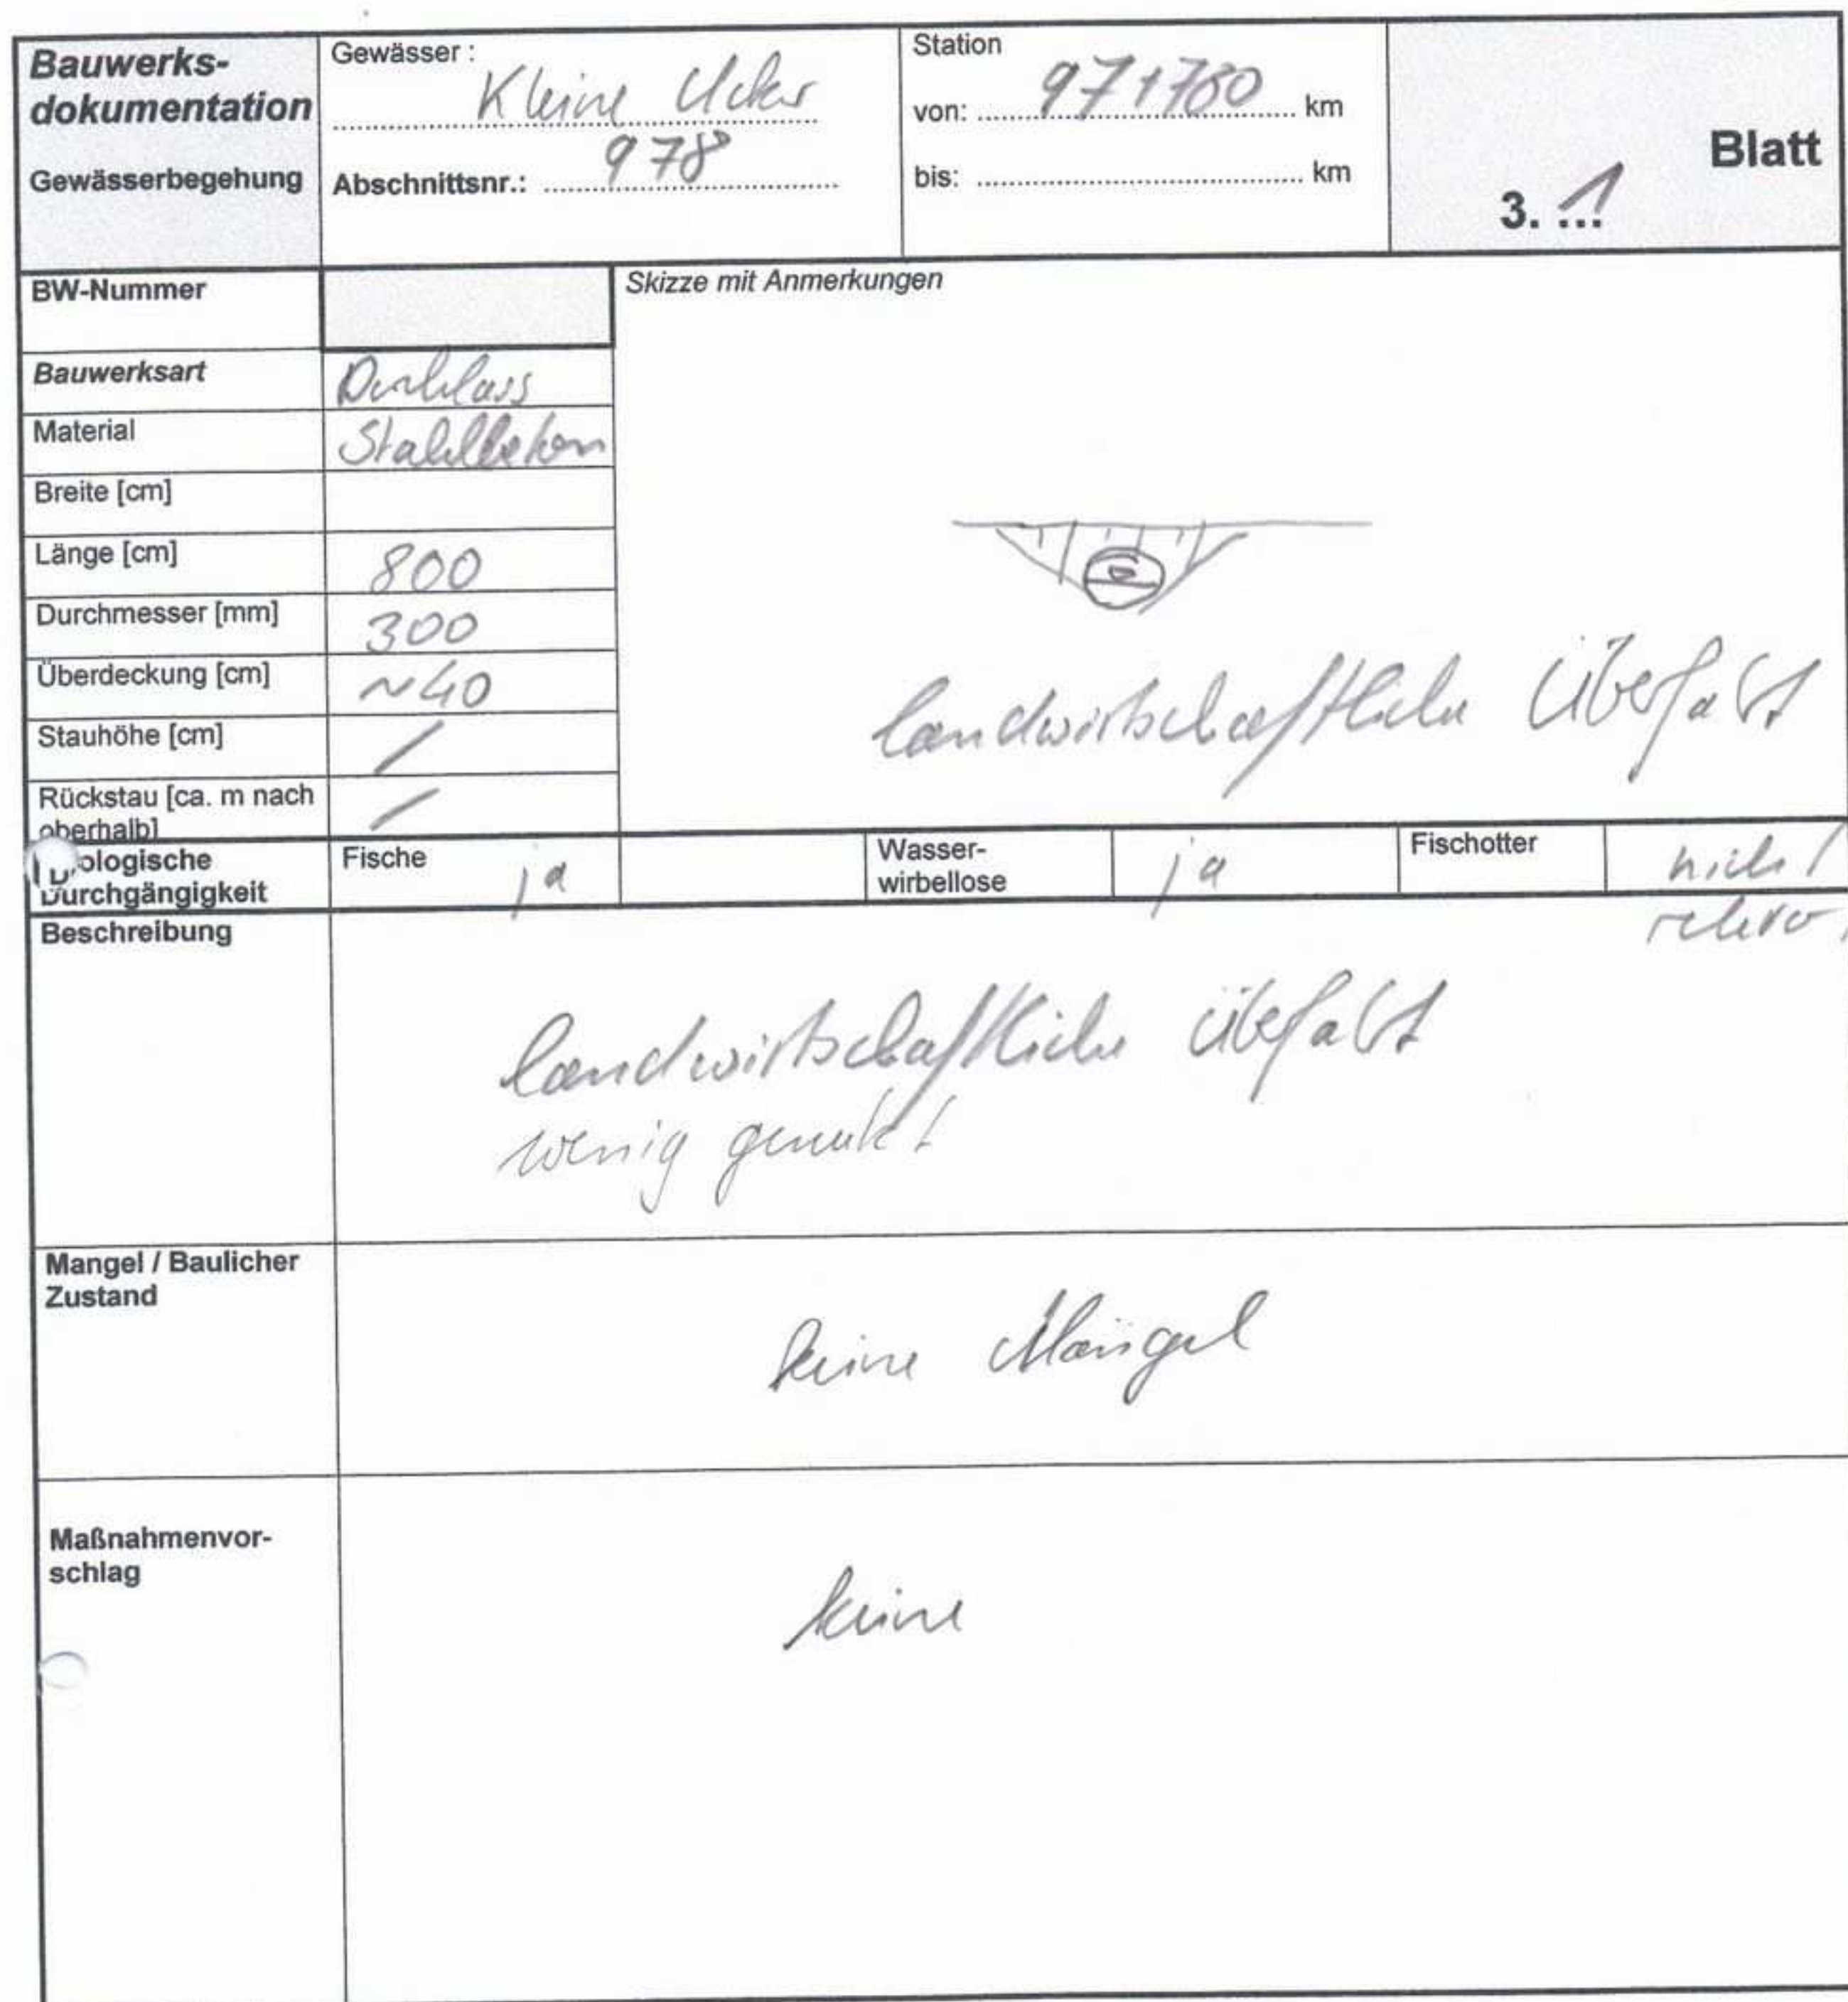 Bauwerks-
dokumentation
Gewässerbegehung
Gewässer :
Kleine Ucker
Abschnittsnr.: 978
Station
von: 97+780 km
bis: km
Blatt
3. 1
BW-Nummer
Skizze mit Anmerkungen
Bauwerksart Durchlass
Material Stahlbeton
Breite [cm]
Länge [cm] 800
Durchmesser [mm] 300
Überdeckung [cm] ~40
Stauhöhe [cm] /
Rückstau [ca. m nach
oberhalb] /
landwirtschaftliche Überfahrt
ologische
Durchgängigkeit
Fische ja
Wasser-
wirbellose ja
Fischotter nicht
Beschreibung
landwirtschaftliche Überfahrt
wenig genutzt
Mangel / Baulicher
Zustand
keine Mängel
Maßnahmenvor-
schlag
keine